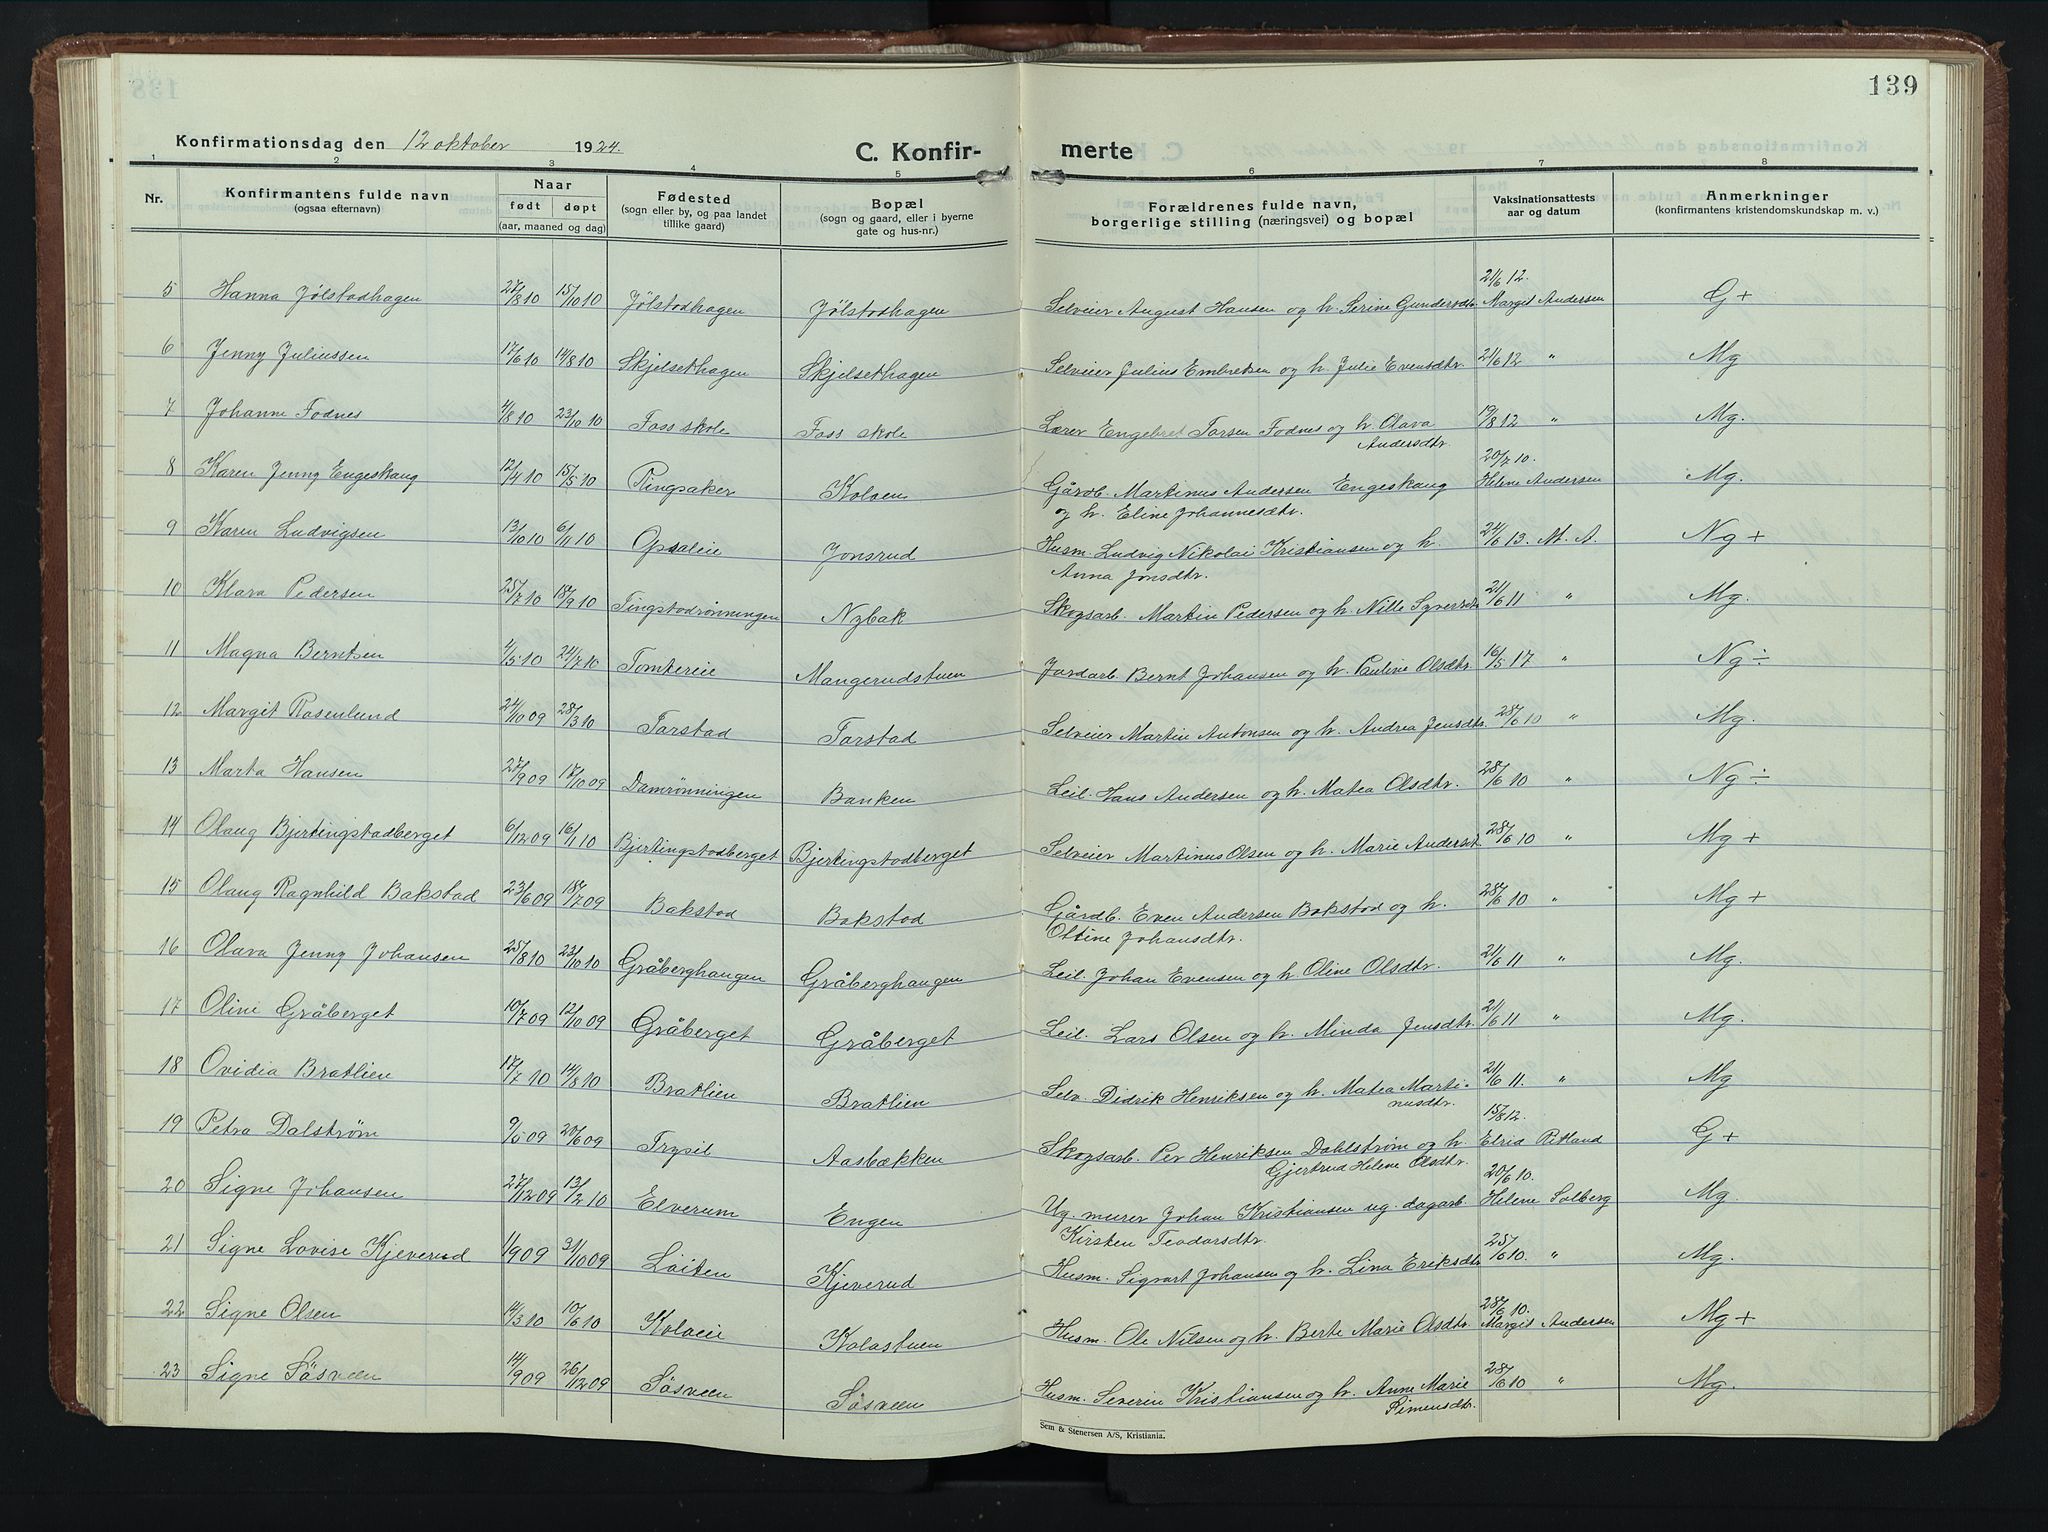 139
Konfirmationsdag den 12 oktober 1924.
C. Konfirmerte
1 2 3 4 5 6 7 8
Nr. Konfirmantens fulde navn (ogsaa efternavn) Naar født døpt (aar, maaned og dag) Fødested (sogn eller by, og paa landet tillike gaard) Bopæl (sogn og gaard, eller i byerne gate og hus-nr.) Forældrenes fulde navn, borgerlige stilling (næringsvei) og bopæl Vaksinationsattests aar og datum Anmerkninger (konfirmantens kristendomskundskap m. v.)
5 Hanna Jølstadhagen 27/8 10 15/10 10 Jølstadhagen Jølstadhagen Selveier August Hansen og h. Serine Gundersdtr. 21/6 12. Margit Andersen G +
6 Jenny Juliussen 17/6 10 14/8 10 Skjelsethagen Skjelsethagen Selveier Julius Embretsen og h. Julie Evensdtr. 21/6 12 " Mg
7 Johanne Fodnes 4/8 10 23/10 10 Foss skole Foss skole Lærer Engebret Larsen Fodnes og h. Olava Andersdtr. 19/8 12 " Mg.
8 Karen Jenny Engeskaug 12/4 10 15/5 10 Ringsaker Koloen Gårdb. Martinus Andersen Engeskaug og h. Eline Johannesdtr. 20/7 10. Helene Andersen Mg.
9 Karen Ludvigsen 13/10 10 6/11 10 Opsaleie Jonsrud Husm. Ludvig Nikolai Kristiansen og h. Anna Jonsdtr. 24/6 13. M. A. Ng +
10 Klara Pedersen 25/7 10 18/9 10 Tingstadrønningen Nybak Skogsarb. Martin Pedersen og h. Nille Syversdtr. 21/6 11 " Mg.
11 Magna Berntsen 4/5 10 24/7 10 Tomtereie Mangerudstuen Jordarb. Bernt Johansen og h. Pauline Olsdtr. 16/5 17 " Ng ÷
12 Margit Rosenlund 24/10 09 28/3 10 Torstad Torstad Selveier Martin Antonsen og h. Andrea Jensdtr. 28/6 10 " Mg.
13 Marta Hansen 27/9 09 17/10 09 Damrønningen Banken Leil. Hans Andersen og h. Matea Olsdtr. 28/6 10 " Ng ÷
14 Olaug Bjertingstadberget 6/12 09 16/1 10 Bjertingstadberget Bjertingstadberget Selveier Martinus Olsen og h. Marie Andersdt. 28/6 10 " Mg +
15 Olaug Ragnhild Bakstad 23/6 09 18/7 09 Bakstad Bakstad Gårdb. Even Andersen Bakstad og h. Ottine Johansdtr. 28/6 10 " Mg +
16 Olava Jenny Johansen 25/8 10 23/10 10 Gråberghaugen Gråberghaugen Leil. Johan Evensen og h. Oline Olsdtr. 21/6 11 " Mg.
17 Oline Gråberget 10/7 09 12/10 09 Gråberget Gråberget Leil. Lars Olsen og h. Minda Jensdtr. 21/6 11 " Mg.
18 Ovidia Bratlien 17/7 10 14/8 10 Bratlien Bratlien Selv. Didrik Henriksen og h. Matea Martinusdtr. 21/6 11. " Mg
19 Petra Dalstrøm 9/5 09 20/6 09 Trysil Aasbækken Skogsarb. Per Henriksen Dahlstrøm og h. Gjertrud Helene Olsdtr. 15/8 12. Elria Ritland G +
20 Signe Johansen 27/12 09 13/2 10 Elverum Engen Ug. murer Johan Kristiansen ug. dagarb. Kirsten Teodorsdtr. 20/6 10. Helene Solberg Mg.
21 Signe Lovise Kjeverud 1/9 09 31/10 09 Löiten Kjeverud Husm. Sigvart Johansen og h. Lina Eriksdtr. 25/6 10. " Mg.
22 Signe Olsen 14/3 10 10/6 10 Koloeie Kolostuen Husm. Ole Nilsen og h. Berte Marie Olsdtr. 28/6 10. Margit Andersen Mg +
23 Signe Søsveen 14/9 09 26/12 09 Søsveen Søsveen Husm. Severin Kristiansen og h. Anne Marie Simensdtr. 28/6 10 " Mg.
Sem & Stenersen A/S, Kristiania.